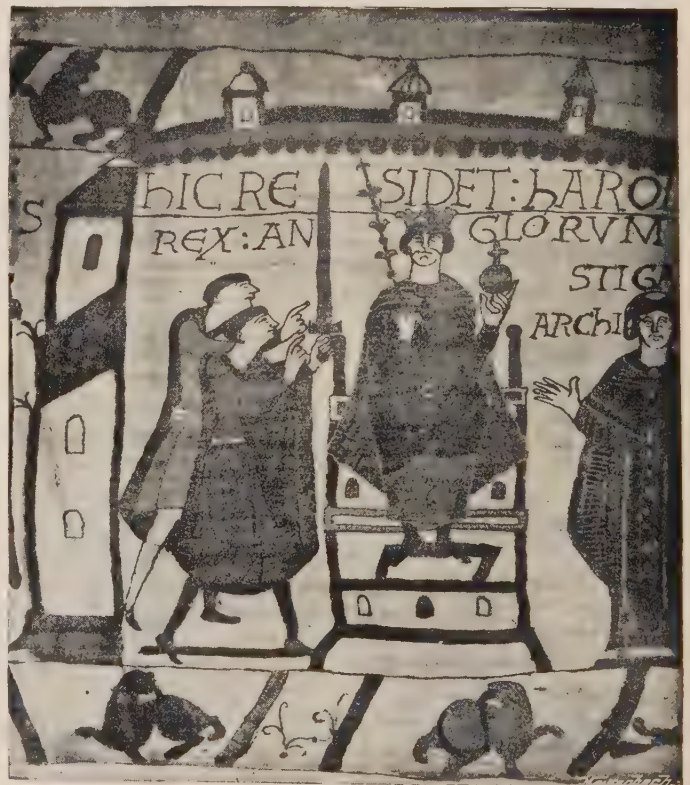 S
hIC RE SIDET: hARO
REX: AN GLORVM
STIG
ARChI